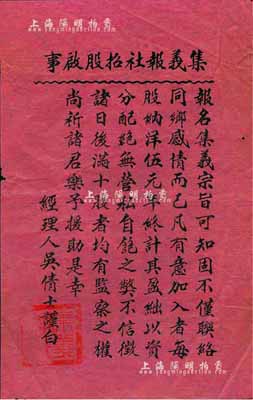 上海陽明拍賣
www.yangmingauction.com
集義報社招股啟事
報名集義宗旨可知固不僅聯絡
同鄉感情而已凡有意加入者每
股納洋伍元年終計其盈絀以資
分配絕無營私自飽之獘不信徵
諸日後滿十股者均有監察之權
尚祈諸君樂予援助是幸
經理人吳倩士謹白
上海陽明拍賣
上海陽明拍賣
www.yangmingauction.com